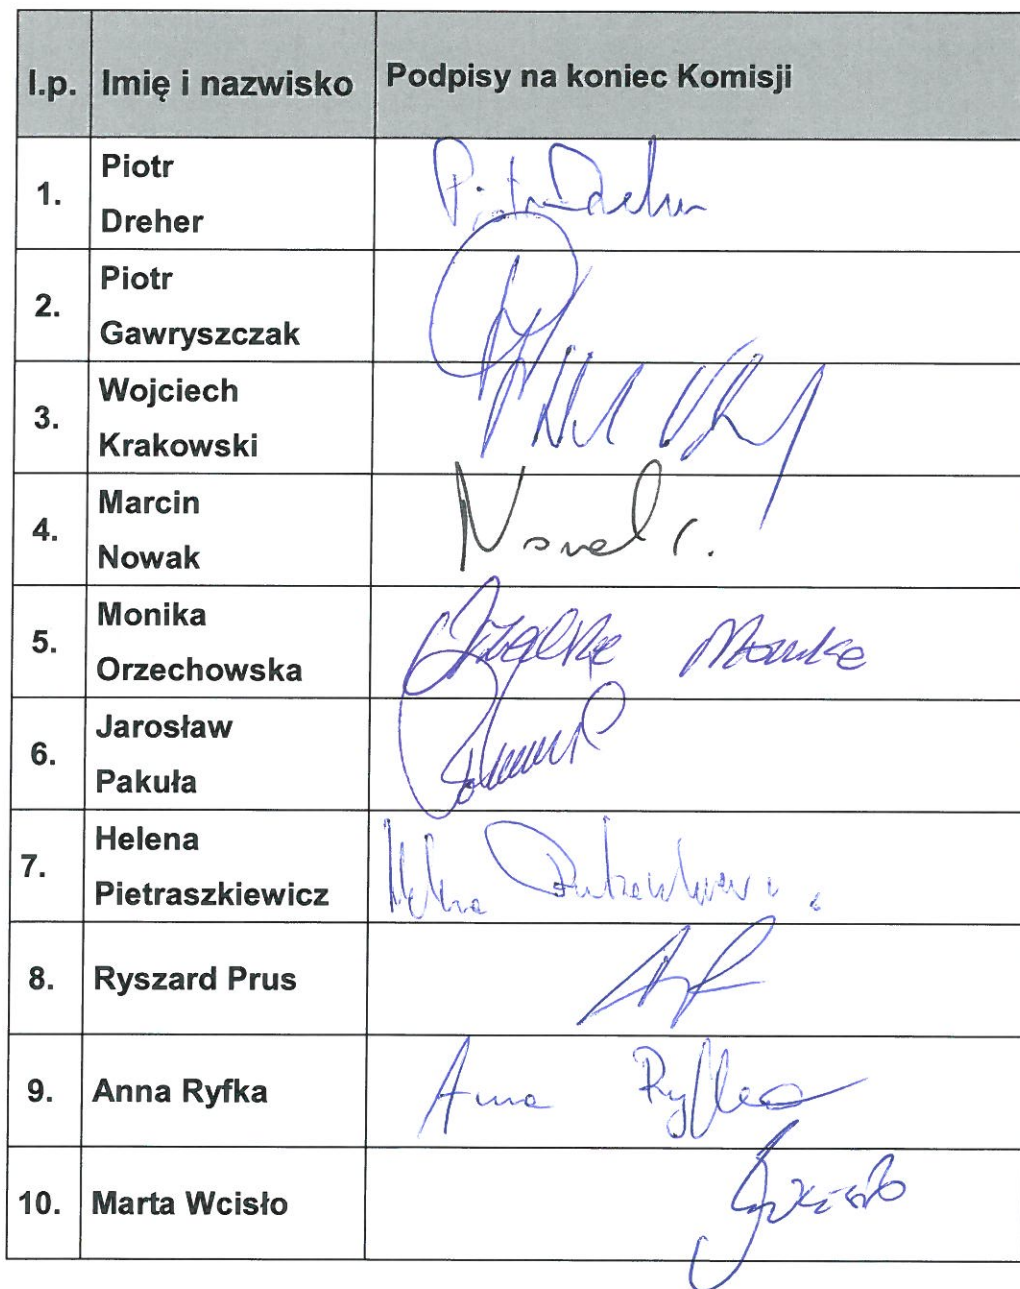 l.p. Imię i nazwisko Podpisy na koniec Komisji
1. Piotr Dreher Piotr Dreher
2. Piotr Gawryszczak
3. Wojciech Krakowski
4. Marcin Nowak
5. Monika Orzechowska
6. Jarosław Pakuła
7. Helena Pietraszkiewicz
8. Ryszard Prus
9. Anna Ryfka Anna Ryfka
10. Marta Wcisło